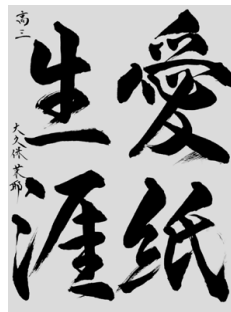 愛紙
生涯
高三
大久保